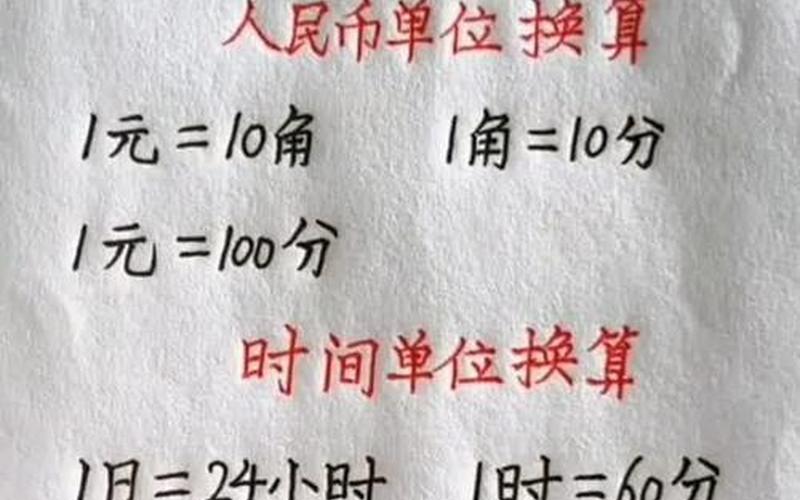 人民币单位换算
1元=10角 1角=10分
1元=100分
时间单位换算
1日=24小时 1时=60分